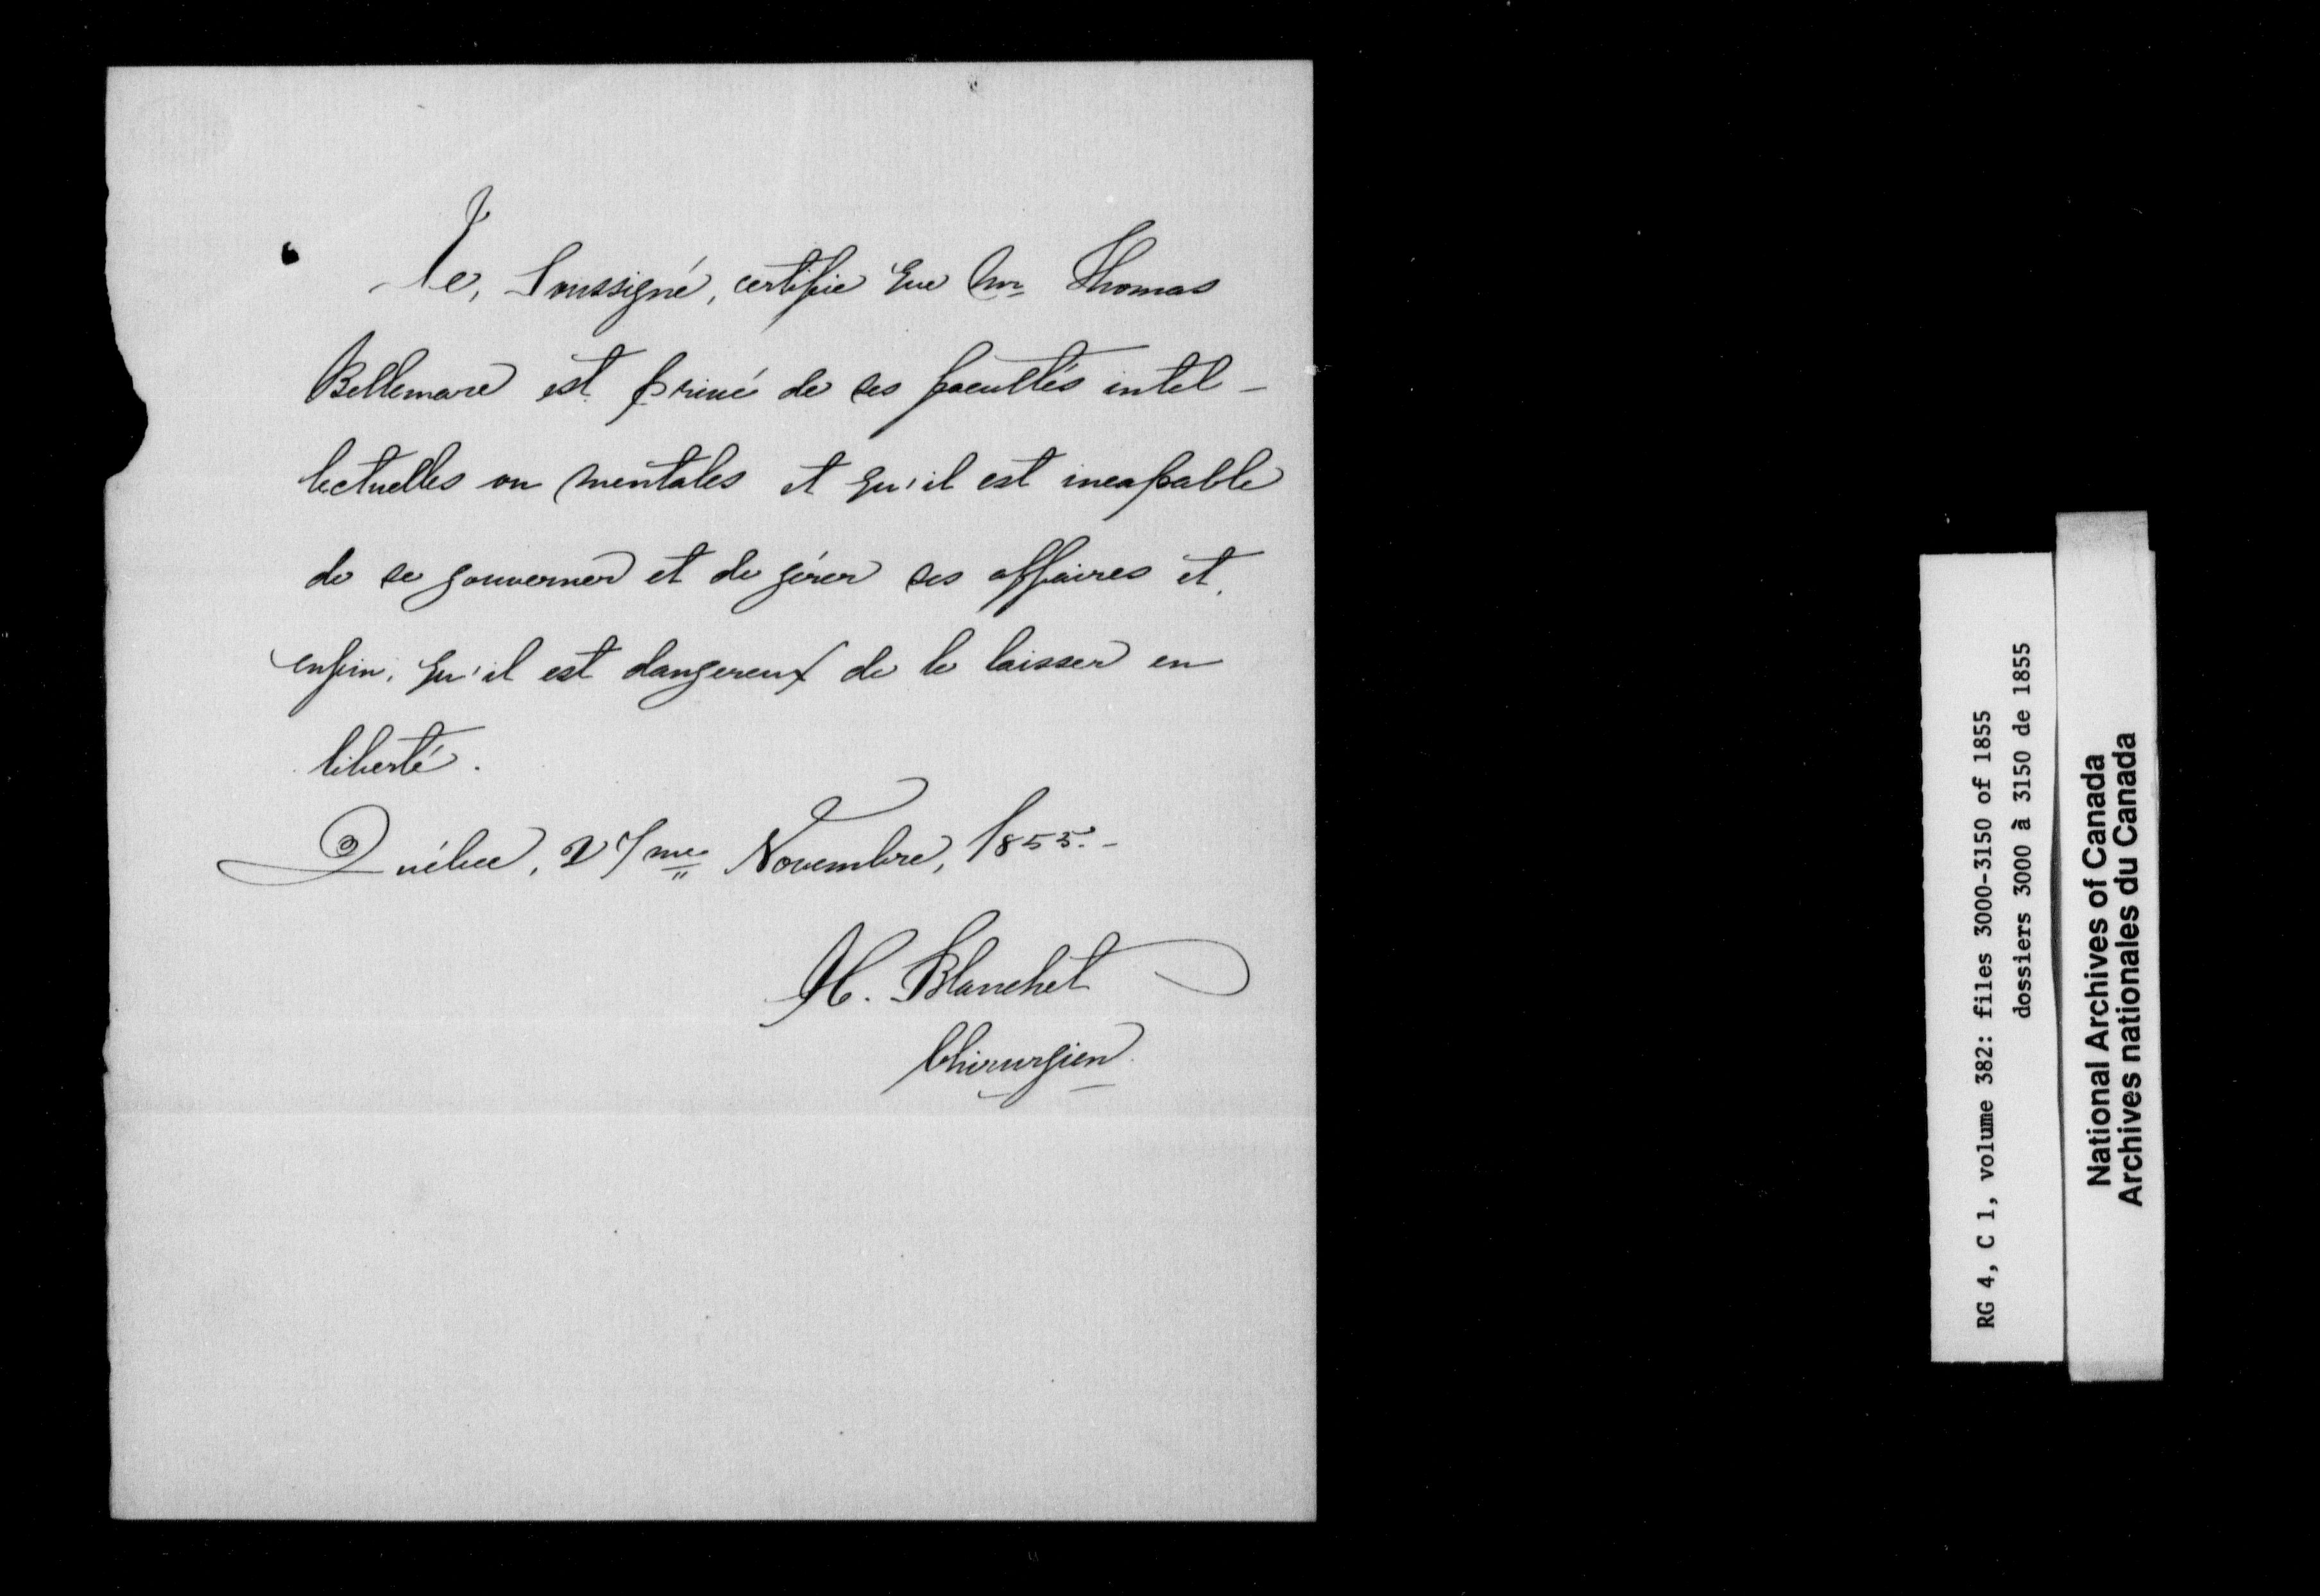 Je, Soussigné, certifie que Mr Thomas
Bellemare est privé de ses facultés intel-
lectuelles ou mentales et qu'il est incapable
de se gouverner et de gérer ses affaires et,
enfin, qu'il est dangereux de le laisser en
liberté.
Québec, 27me Novembre, 1855.-
H. Blanchet
Chirurgien
RG 4, C 1, volume 382: files 3000-3150 of 1855
dossiers 3000 à 3150 de 1855
National Archives of Canada
Archives nationales du Canada